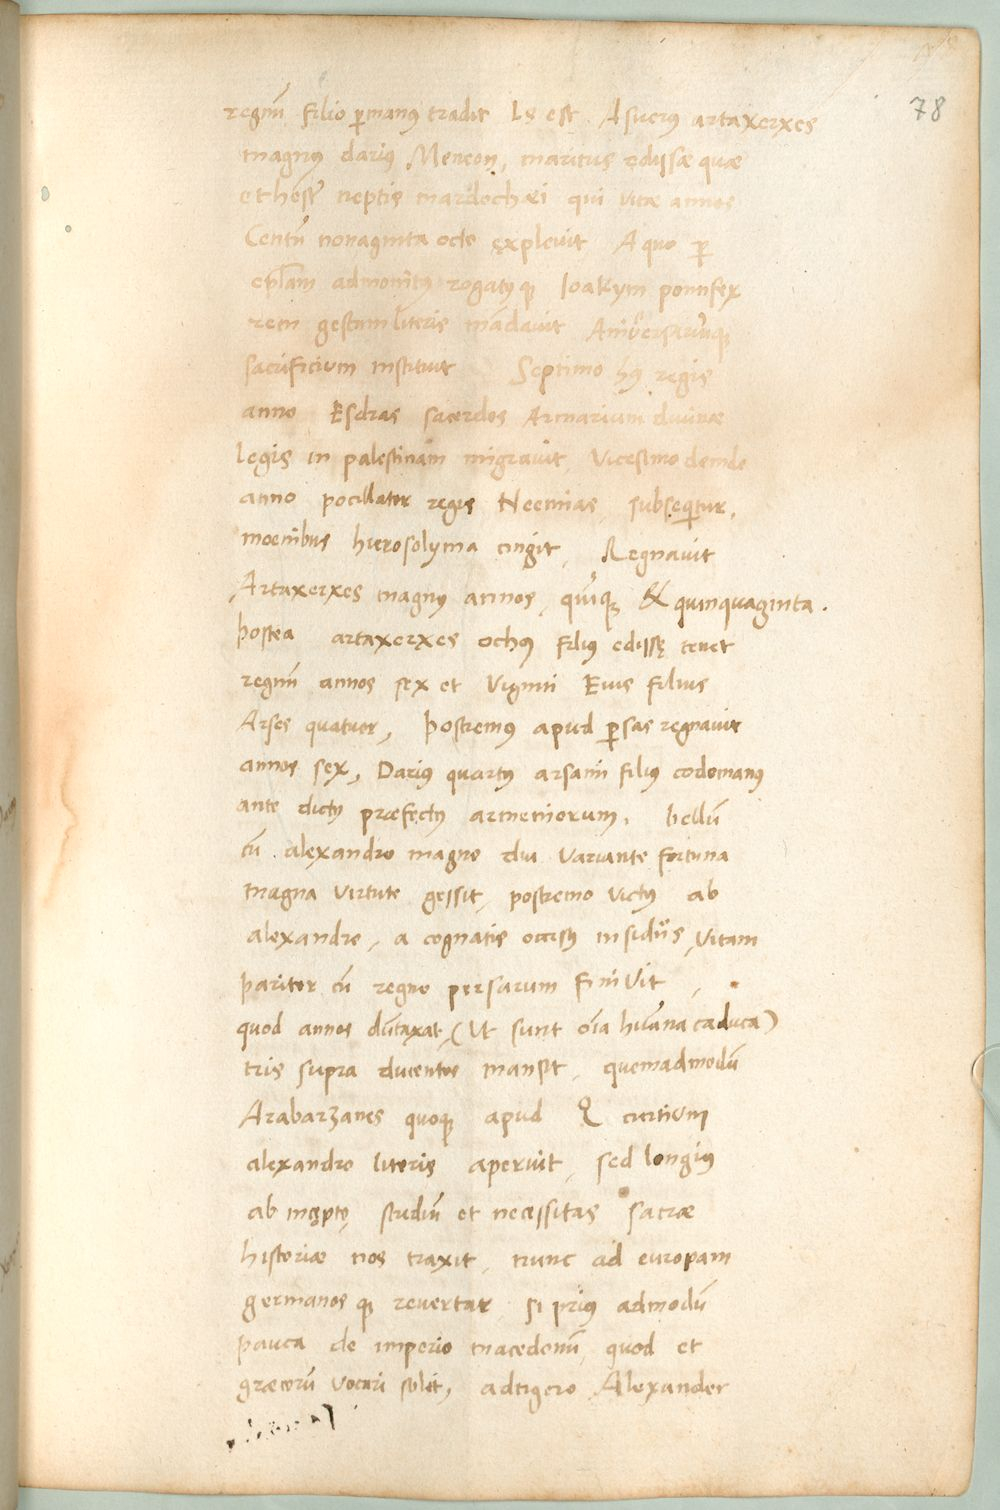 78
regnū filio p manus tradit Is est Asuerus artaxerxes
magnus darius Mencon, maritus edissæ quæ
et hester neptis mardochæi qui vitæ annos
Centū nonaginta octo explevit A quo per
eplam admonitus rogatusque Ioakym pontifex
rem gestam literis mādavit Aniversariumque
sacrificium instituit Septimo huius regis
anno Esdras sacerdos Armarium divinæ
legis in palestinam migravit, Vicesimo deinde
anno pocillator regis Neemias, subsequitur,
moenibus hierosolyma cingit, Regnavit
Artaxerxes magnus annos, quique & quinquaginta.
postea artaxerxes ochus filius edissę tenet
regnū annos sex et viginti Eius filius
Arses quatuor, postremus apud persas regnavit
annos sex, Darius quartus arsami filius codomanus
ante dictus præfectus armeniorum, bellū
cū alexandro magno diu variante fortuna
magna virtute gessit, postremo victus ab
alexandro, a cognatis occisus insidiis, vitam
pariter cū regno persarum finivit,
quod annos dūtaxat, (Ut sunt oīa humana caduca)
tris supra ducentos mansit, quemadmodū
Arabarzanes quoque apud Q curtium
alexandro literis aperuit, sed longius
ab incepto, studiū et necessitas sacræ
historiæ nos traxit, nunc ad europam
germanosque revertar, si prius admodū
pauca de imperio macedonū, quod et
græcorū vocari solet, adtigero Alexander